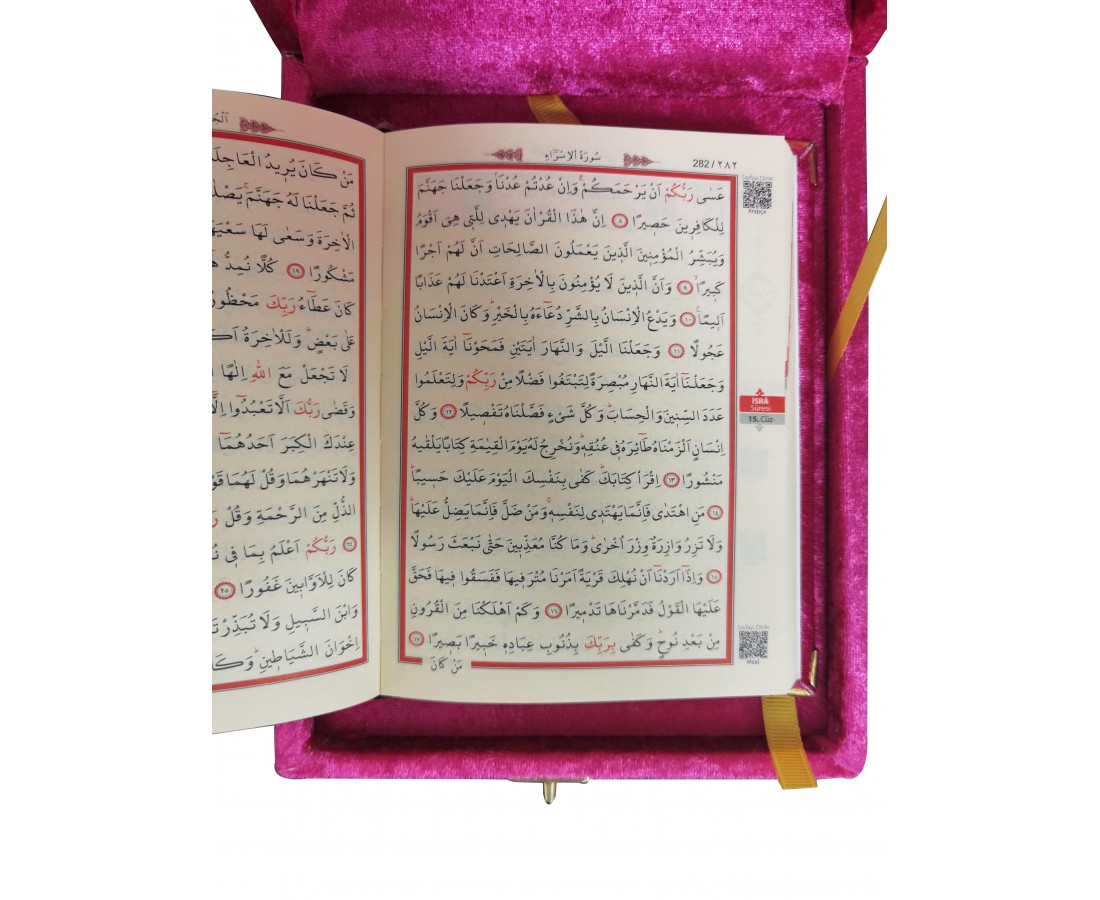 سُورَةُ الْاِسْرَاءِ
282 / ٢٨٢
عَسٰى رَبُّكُمْ اَنْ يَرْحَمَكُمْۚ وَاِنْ عُدْتُمْ عُدْنَاۢ وَجَعَلْنَا جَهَنَّمَ
لِلْكَافِرٖينَ حَصٖيرًا ﴿٨﴾ اِنَّ هٰذَا الْقُرْاٰنَ يَهْدٖي لِلَّتٖي هِيَ اَقْوَمُ
وَيُبَشِّرُ الْمُؤْمِنٖينَ الَّذٖينَ يَعْمَلُونَ الصَّالِحَاتِ اَنَّ لَهُمْ اَجْرًا
كَبٖيرًاۙ ﴿٩﴾ وَاَنَّ الَّذٖينَ لَا يُؤْمِنُونَ بِالْاٰخِرَةِ اَعْتَدْنَا لَهُمْ عَذَابًا
اَلٖيمًا۟ ﴿١٠﴾ وَيَدْعُ الْاِنْسَانُ بِالشَّرِّ دُعَٓاءَهُ بِالْخَيْرِؕ وَكَانَ الْاِنْسَانُ
عَجُولًا ﴿١١﴾ وَجَعَلْنَا الَّيْلَ وَالنَّهَارَ اٰيَتَيْنِ فَمَحَوْنَٓا اٰيَةَ الَّيْلِ
وَجَعَلْنَٓا اٰيَةَ النَّهَارِ مُبْصِرَةً لِتَبْتَغُوا فَضْلًا مِنْ رَبِّكُمْ وَلِتَعْلَمُوا
عَدَدَ السِّنٖينَ وَالْحِسَابَؕ وَكُلَّ شَيْءٍ فَصَّلْنَاهُ تَفْصٖيلًا ﴿١٢﴾ وَكُلَّ
اِنْسَانٍ اَلْزَمْنَاهُ طَٓائِرَهُ فٖي عُنُقِهٖؕ وَنُخْرِجُ لَهُ يَوْمَ الْقِيٰمَةِ كِتَابًا يَلْقٰيهُ
مَنْشُورًا ﴿١٣﴾ اِقْرَاْ كِتَابَكَؕ كَفٰى بِنَفْسِكَ الْيَوْمَ عَلَيْكَ حَسٖيبًاؕ
﴿١٤﴾ مَنِ اهْتَدٰى فَاِنَّمَا يَهْتَدٖي لِنَفْسِهٖۚ وَمَنْ ضَلَّ فَاِنَّمَا يَضِلُّ عَلَيْهَاؕ
وَلَا تَزِرُ وَازِرَةٌ وِزْرَ اُخْرٰىؕ وَمَا كُنَّا مُعَذِّبٖينَ حَتّٰى نَبْعَثَ رَسُولًا
﴿١٥﴾ وَاِذَٓا اَرَدْنَٓا اَنْ نُهْلِكَ قَرْيَةً اَمَرْنَا مُتْرَفٖيهَا فَفَسَقُوا فٖيهَا فَحَقَّ
عَلَيْهَا الْقَوْلُ فَدَمَّرْنَاهَا تَدْمٖيرًا ﴿١٦﴾ وَكَمْ اَهْلَكْنَا مِنَ الْقُرُونِ
مِنْ بَعْدِ نُوحٍؕ وَكَفٰى بِرَبِّكَ بِذُنُوبِ عِبَادِهٖ خَبٖيرًا بَصٖيرًا ﴿١٧﴾
مَنْ كَانَ
Sayfayı Dinle
Arapça
İSRÂ
Sûresi
15. Cüz
Sayfayı Dinle
Meal
مَنْ كَانَ يُرٖيدُ الْعَاجِلَ
ثُمَّ جَعَلْنَا لَهُ جَهَنَّمَۚ يَصْلٰ
الْاٰخِرَةَ وَسَعٰى لَهَا سَعْيَهَ
مَشْكُورًا ﴿١٩﴾ كُلًّا نُمِدُّ
كَانَ عَطَٓاءُ رَبِّكَ مَحْظُورً
عَلٰى بَعْضٍؕ وَلَلْاٰخِرَةُ اَكْ
لَا تَجْعَلْ مَعَ اللّٰهِ اِلٰهًا
وَقَضٰى رَبُّكَ اَلَّا تَعْبُدُٓوا اِلَّٓ
عِنْدَكَ الْكِبَرَ اَحَدُهُمَٓا
وَلَا تَنْهَرْهُمَا وَقُلْ لَهُمَا قَوْ
الذُّلِّ مِنَ الرَّحْمَةِ وَقُلْ رَ
﴿٢٤﴾ رَبُّكُمْ اَعْلَمُ بِمَا فٖي نُ
كَانَ لِلْاَوَّابٖينَ غَفُورًا ﴿٢٥﴾
وَابْنَ السَّبٖيلِ وَلَا تُبَذِّرْ تَ
اِخْوَانَ الشَّيَاطٖينِؕ وَكَ